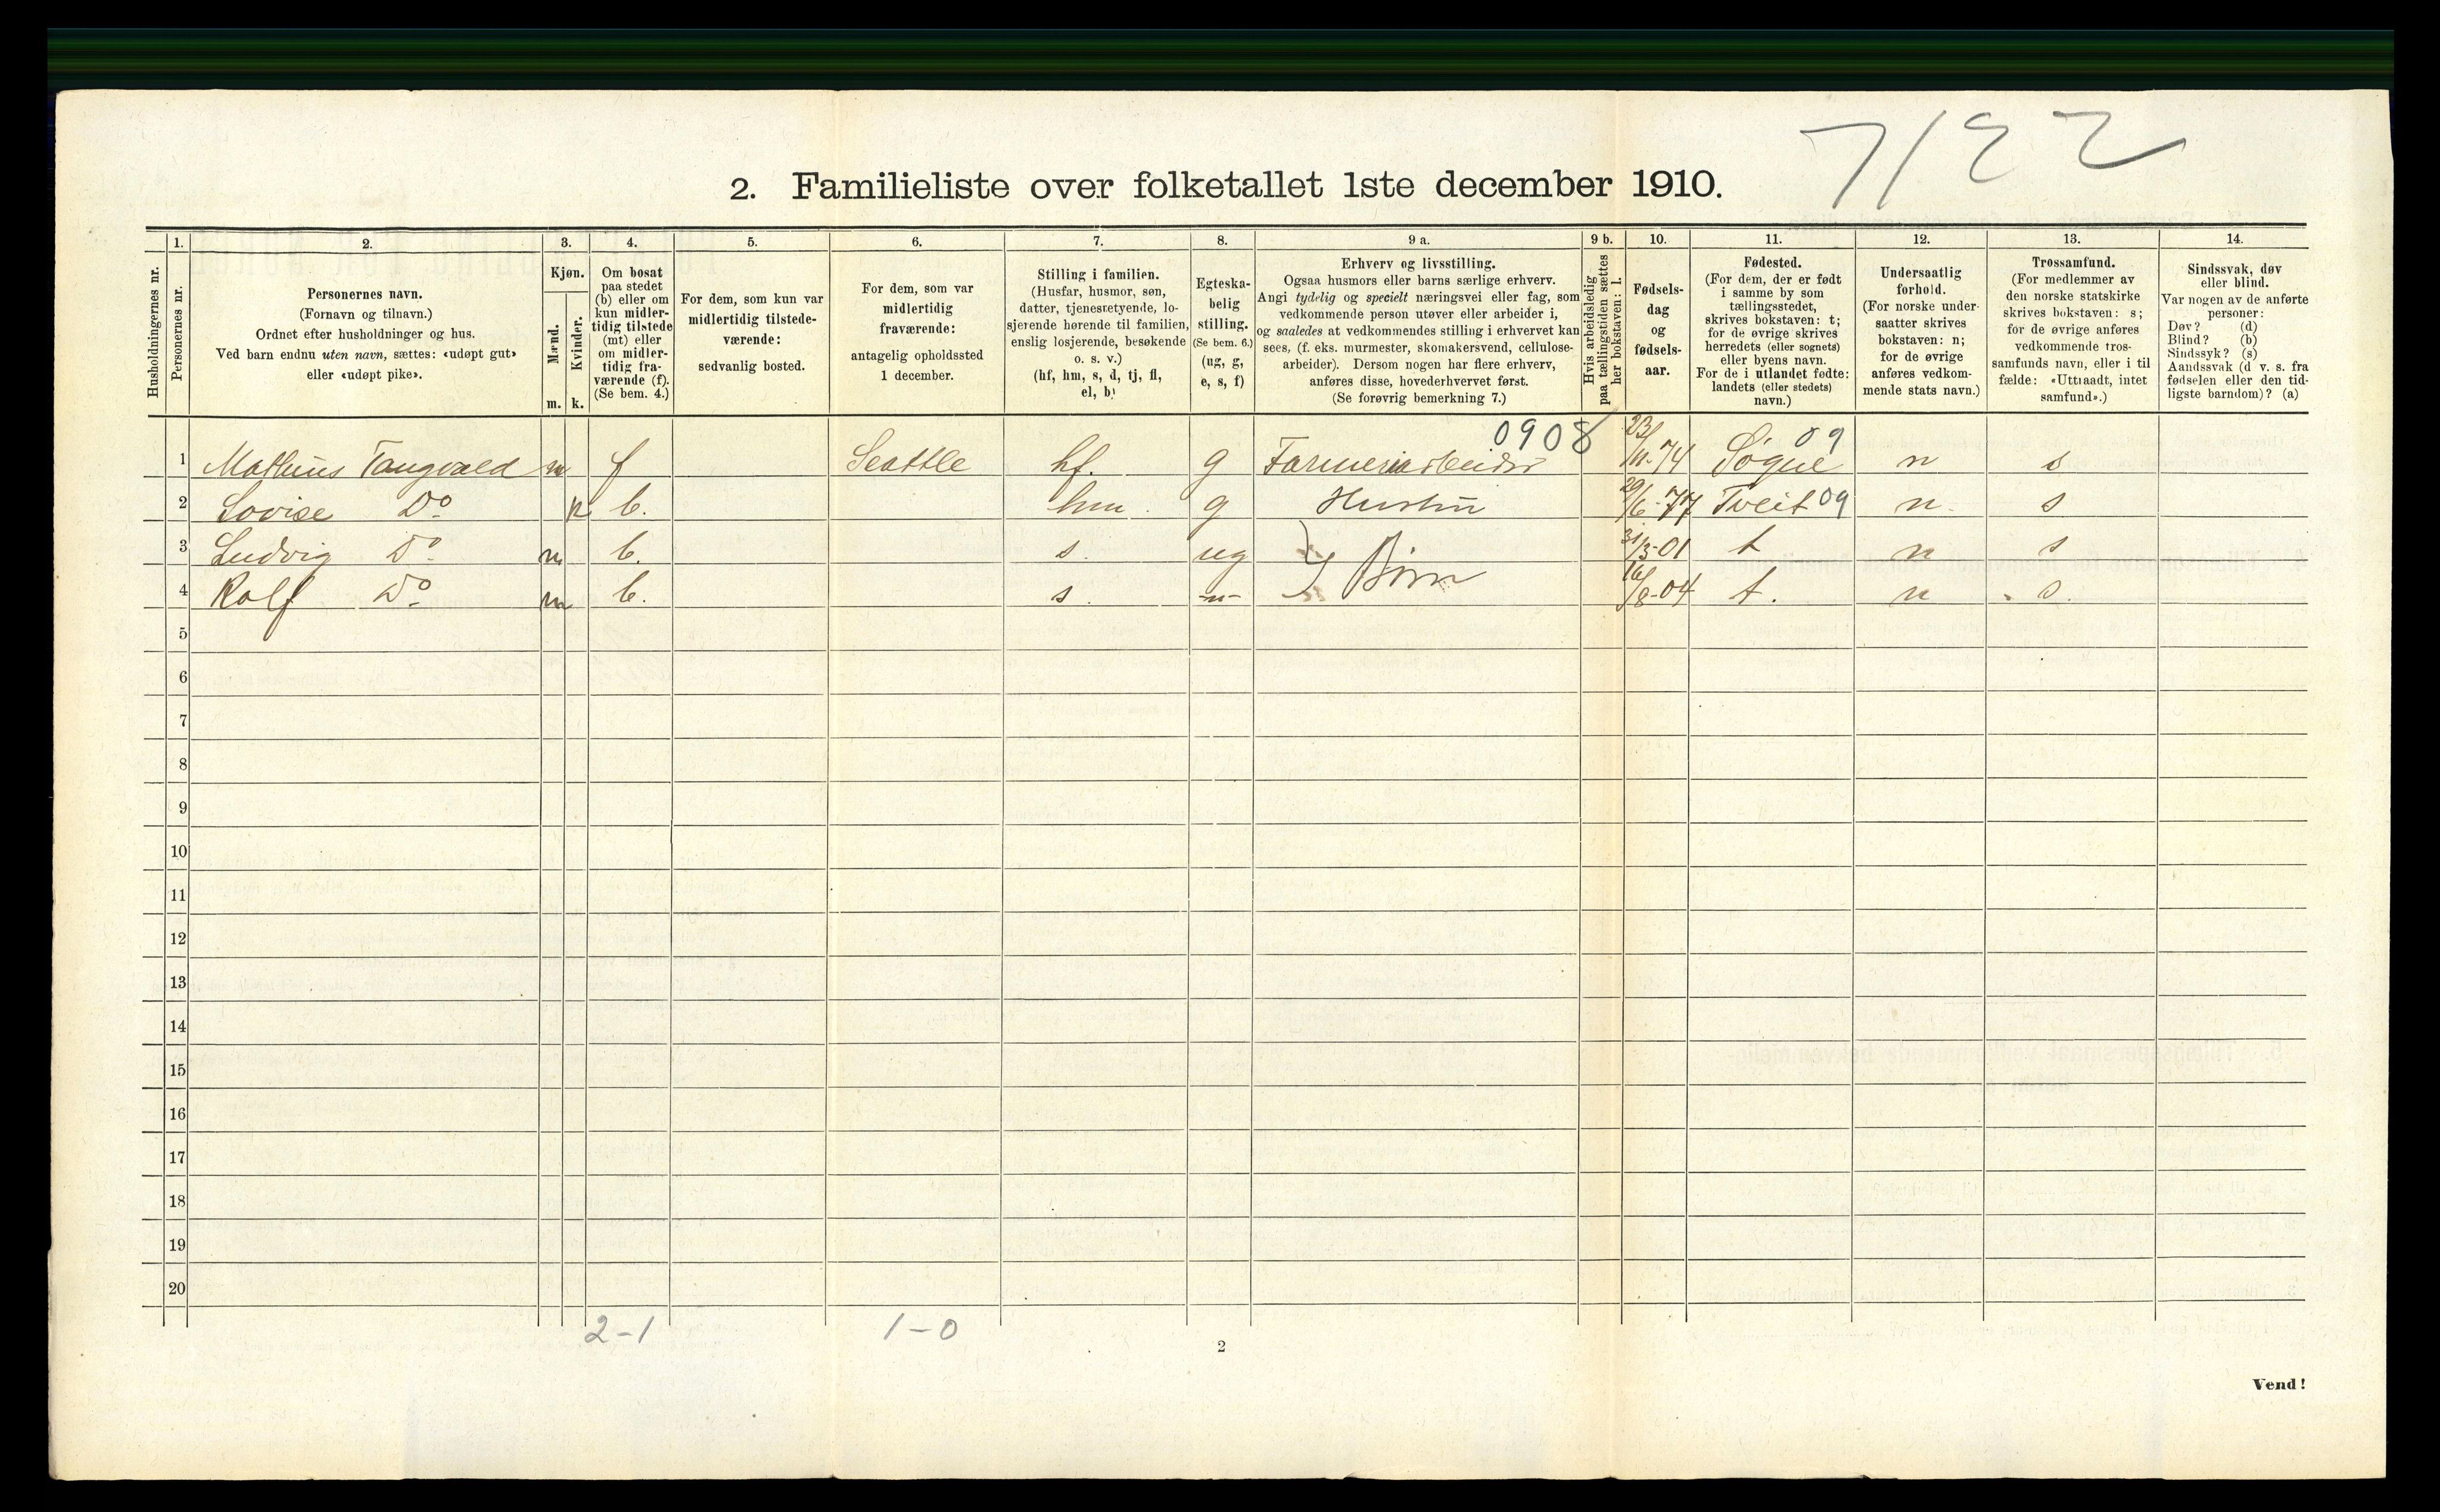 7122
2. Familieliste over folketallet 1ste december 1910.
Husholdningernes nr.
1. Personernes nr.
2. Personernes navn.
(Fornavn og tilnavn.)
Ordnet efter husholdninger og hus.
Ved barn endnu uten navn, sættes: «udøpt gut»
eller «udøpt pike».
3. Kjøn.
Mænd. m.
Kvinder. k.
4. Om bosat
paa stedet
(b) eller om
kun midler-
tidig tilstede
(mt) eller
om midler-
tidig fra-
værende (f).
(Se bem. 4.)
5. For dem, som kun var
midlertidig tilstede-
værende:
sedvanlig bosted.
6. For dem, som var
midlertidig
fraværende:
antagelig opholdssted
1 december.
7. Stilling i familien.
(Husfar, husmor, søn,
datter, tjenesteyende, lo-
sjerende hørende til familien,
enslig losjerende, besøkende
o. s. v.)
(hf, hm, s, d, tj, fl,
el, b)
8. Egteska-
belig
stilling.
(Se bem. 6.)
(ug, g,
e, s, f)
9 a. Erhverv og livsstilling.
Ogsaa husmors eller barns særlige erhverv.
Angi tydelig og specielt næringsvei eller fag, som
vedkommende person utøver eller arbeider i,
og saaledes at vedkommendes stilling i erhvervet kan
sees, (f. eks. murmester, skomakersvend, cellulose-
arbeider). Dersom nogen har flere erhverv,
anføres disse, hovederhvervet først.
(Se forøvrig bemerkning 7.)
9 b. Hvis arbeidsledig
paa tællingstiden sættes
her bokstaven: l.
10. Fødsels-
dag
og
fødsels-
aar.
11. Fødested.
(For dem, der er født
i samme by som
tællingsstedet,
skrives bokstaven: t;
for de øvrige skrives
herredets (eller sognets)
eller byens navn.
For de i utlandet fødte:
landets (eller stedets)
navn.)
12. Undersaatlig
forhold.
(For norske under-
saatter skrives
bokstaven: n;
for de øvrige
anføres vedkom-
mende stats navn.)
13. Trossamfund.
(For medlemmer av
den norske statskirke
skrives bokstaven: s;
for de øvrige anføres
vedkommende tros-
samfunds navn, eller i til
fælde: «Uttraadt, intet
samfund».)
14. Sindssvak, døv
eller blind.
Var nogen av de anførte
personer:
Døv? (d)
Blind? (b)
Sindssyk? (s)
Aandssvak (d v. s. fra
fødselen eller den tid-
ligste barndom)? (a)
0908 09
1 Mathius Tangvald m f Seattle hf. g Farmeriarbeider 23/11-74 Søgne n s
2 Lovise Do k b. hm. g Hustru 29/6-77 Tveit 09 n. s
3 Ludvig Do m b. s. ug } Børn 31/3-01 t n s
4 Rolf Do m b. s. -"- 16/8-04 t. n s.
5
6
7
8
9
10
11
12
13
14
15
16
17
18
19
20
2-1 1-0
2
Vend!